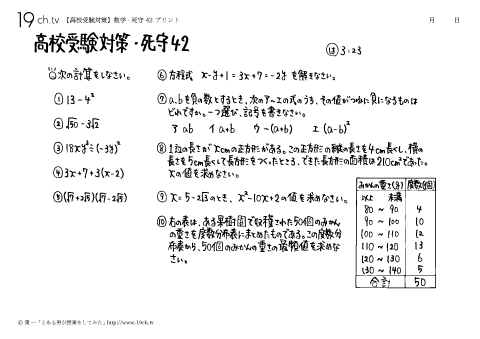 19ch.tv 【高校受験対策】数学-死守42プリント 月 日
高校受験対策・死守42
⑱ 3:23
次の計算をしなさい。
① 13-4²
② √50-3√2
③ 18xy²÷(-3y)²
④ 3x+7+3(x-2)
⑤ (√7+2√3)(√7-2√3)
⑥ 方程式 x-y+1=3x+7=-2y を解きなさい。
⑦ a、bを負の数とするとき、次のア〜エの式のうち、その値がつねに負になるものは
どれですか。一つ選び、記号を書きなさい。
ア ab イ a+b ウ -(a+b) エ (a-b)²
⑧ 1辺の長さがxcmの正方形がある。この正方形の縦の長さを4cm長くし、横の
長さを5cm長くして長方形をつくったところ、できた長方形の面積は210cm²であった。
xの値を求めなさい。
⑨ x=5-2√3のとき、x²-10x+2の値を求めなさい。
⑩ 右の表は、ある果樹園で収穫された50個のみかん
の重さを度数分布表にまとめたものである。この度数分
布表から、50個のみかんの重さの最頻値を求めな
さい。
みかんの重さ(g) 度数(個)
以上 未満
80 〜 90 4
90 〜 100 10
100 〜 110 12
110 〜 120 13
120 〜 130 6
130 〜 140 5
合計 50
© 葉一「とある男が授業をしてみた」http://www.19ch.tv